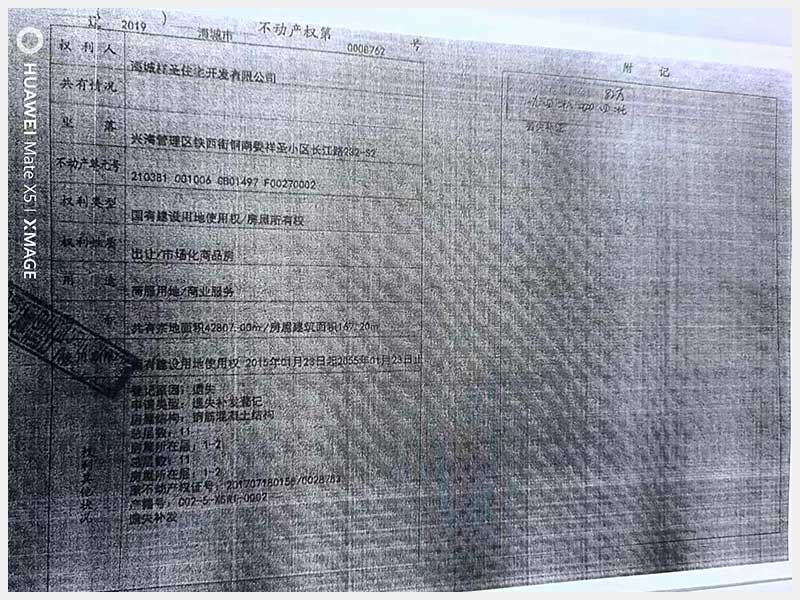 辽 2019 海城市 不动产权第 0008762 号
权利人
海城祥圣住宅开发有限公司
共有情况
坐落
兴海管理区铁西街铜南委祥圣小区长江路232-S2
不动产单元号
210381 001006 GB01497 F00270002
权利类型
国有建设用地使用权/房屋所有权
权利性质
出让/市场化商品房
用途
商服用地/商业服务
共有宗地面积42807.00㎡/房屋建筑面积167.20㎡
国有建设用地使用权 2015年01月23日起2055年01月23日止
权利其他状况
登记原因：遗失
申请类型：遗失补发登记
房屋结构：钢筋混凝土结构
总层数：11
房屋所在层：1-2
总层数：11
房屋所在层：1-2
原不动产权证号：20170718015
遗失补发
附 记
遗失补证
HUAWEI Mate X5 | XMAGE